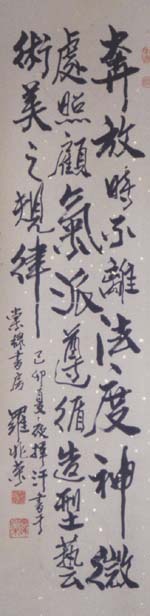 奔放時不離法度神微
處照顧氣派遵循造型藝
術美之規律
己卯夏夜揮汗書于
崇穆書房 羅兆榮